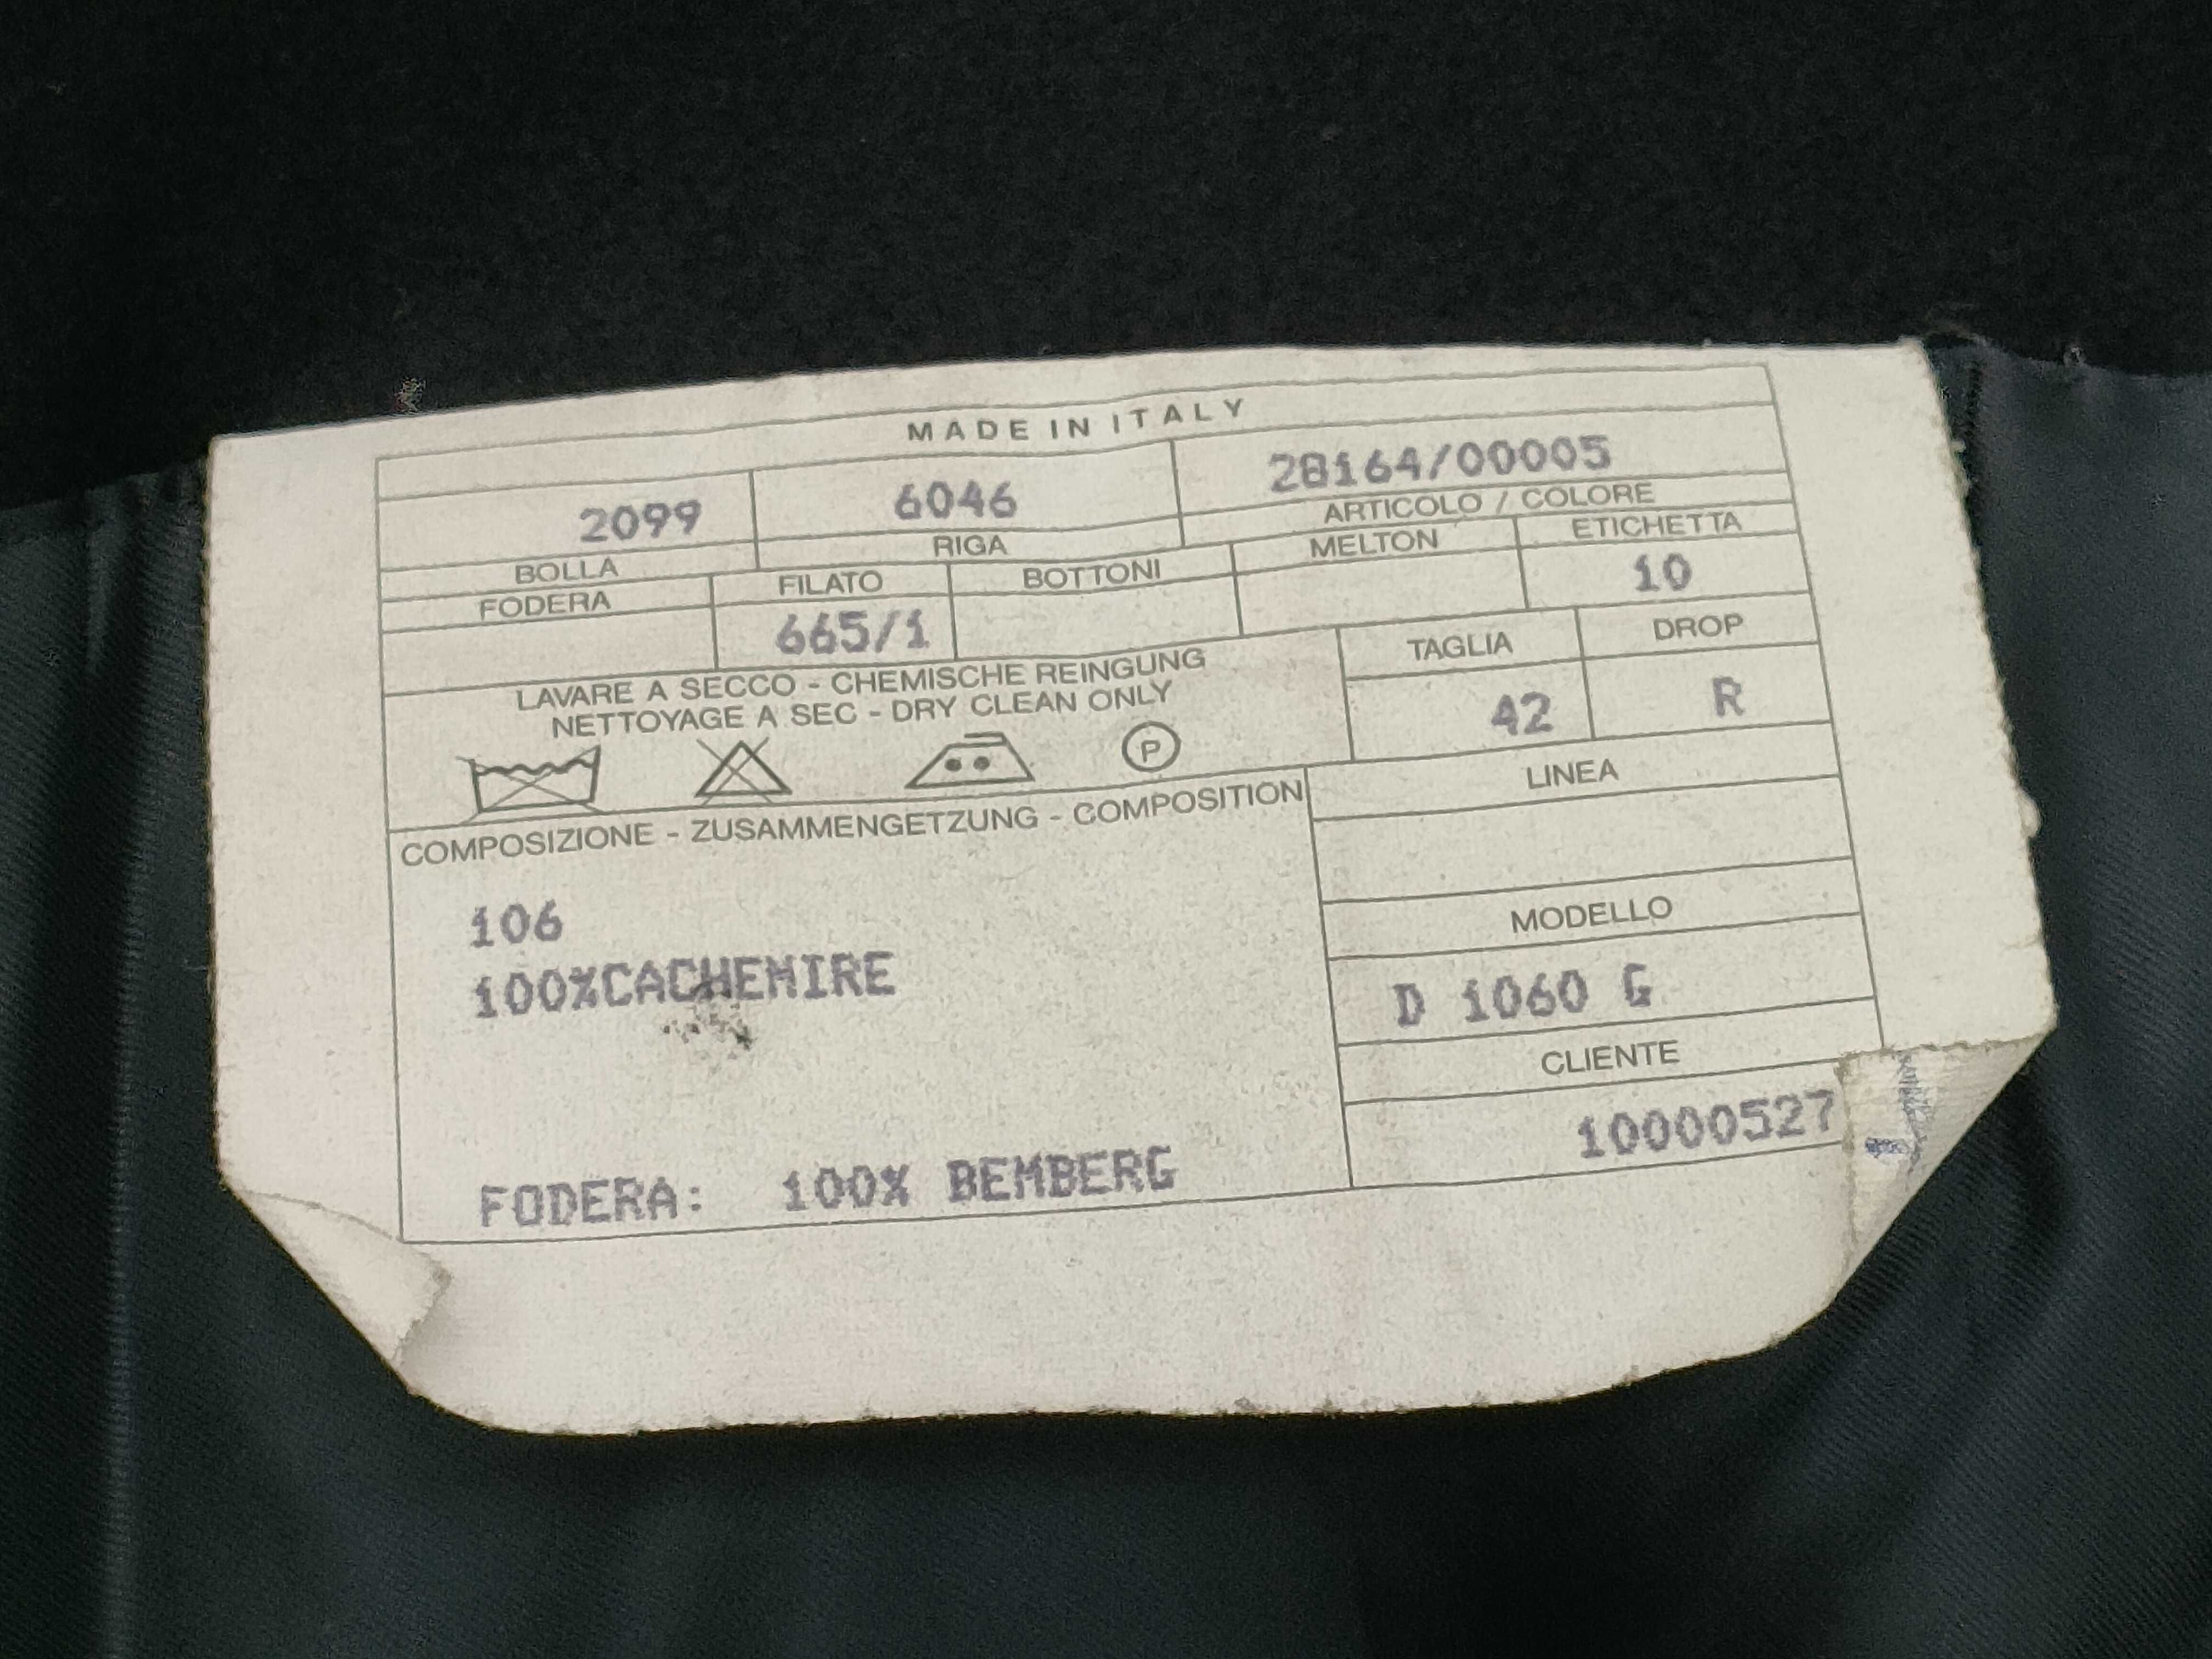 MADE IN ITALY
2099 6046 28164/00005
BOLLA RIGA ARTICOLO / COLORE
FODERA FILATO BOTTONI MELTON ETICHETTA
665/1 10
LAVARE A SECCO - CHEMISCHE REINGUNG
NETTOYAGE A SEC - DRY CLEAN ONLY
P
TAGLIA DROP
42 R
COMPOSIZIONE - ZUSAMMENGETZUNG - COMPOSITION
106
100%CACHEMIRE
FODERA: 100% BEMBERG
LINEA
MODELLO
D 1060 G
CLIENTE
10000527